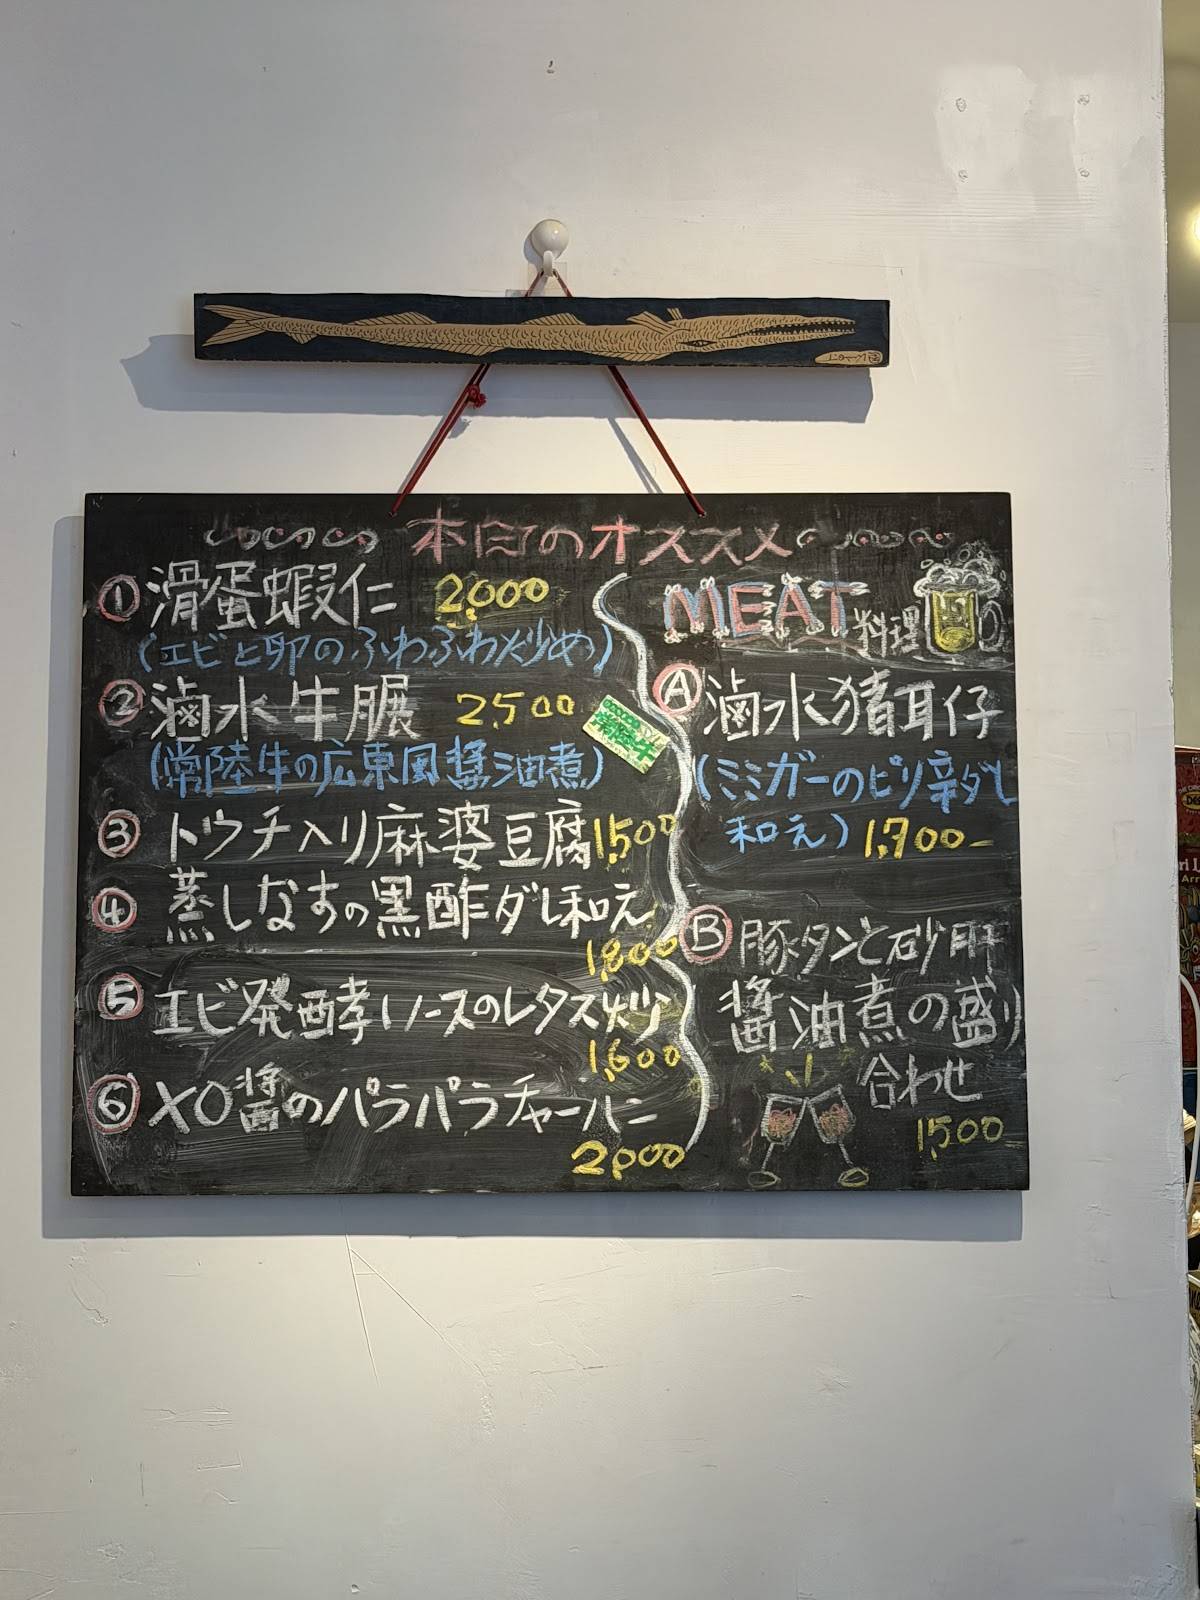 本日のオススメ
① 滑蛋蝦仁 2,000
(エビと卵のふわふわ炒め)
② 滷水牛腱 2,500
(常陸牛の広東風醤油煮)
常陸牛
③ トウチ入り麻婆豆腐 1,500
④ 蒸しなすの黒酢ダレ和え
1,800
⑤ エビ発酵ソースのレタス炒
1,600
⑥ XO醤のパラパラチャーハン
2,000
MEAT料理
Ⓐ 滷水猪耳仔
(ミミガーのピリ辛ダレ
和え) 1,700-
Ⓑ 豚タンと砂肝
醤油煮の盛り
合わせ
1,500